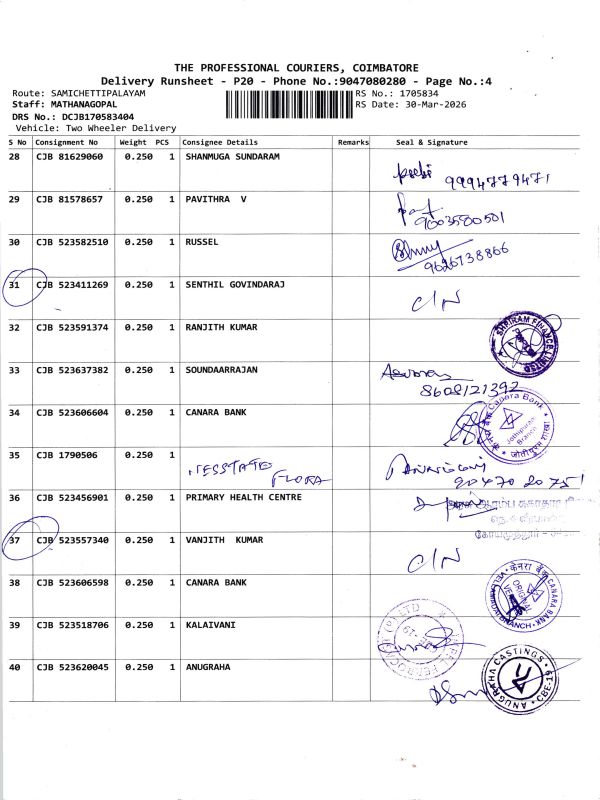 THE PROFESSIONAL COURIERS, COIMBATORE
Delivery Runsheet - P20 - Phone No.:9047080280 - Page No.:4
Route: SAMICHETTIPALAYAM RS No.: 1705834
Staff: MATHANAGOPAL RS Date: 30-Mar-2026
DRS No.: DCJB170583404
Vehicle: Two Wheeler Delivery
S No Consignment No Weight PCS Consignee Details Remarks Seal & Signature
28 CJB 81629060 0.250 1 SHANMUGA SUNDARAM
9994779471
29 CJB 81578657 0.250 1 PAVITHRA V
9003580501
30 CJB 523582510 0.250 1 RUSSEL
9626738866
31 CJB 523411269 0.250 1 SENTHIL GOVINDARAJ
C/N
32 CJB 523591374 0.250 1 RANJITH KUMAR
SHRIRAM FINANCE LIMITED
33 CJB 523637382 0.250 1 SOUNDAARRAJAN
8608121392
34 CJB 523606604 0.250 1 CANARA BANK
Canara Bank
Jothipuram
Branch
35 CJB 1790506 0.250 1
FLORA
90470 20751
36 CJB 523456901 0.250 1 PRIMARY HEALTH CENTRE
37 CJB 523557340 0.250 1 VANJITH KUMAR
C/N
38 CJB 523606598 0.250 1 CANARA BANK
केनरा बैंक CANARA BANK
ORIGINAL
39 CJB 523518706 0.250 1 KALAIVANI
40 CJB 523620045 0.250 1 ANUGRAHA
ANUGRAHA CASTINGS
CBE-19